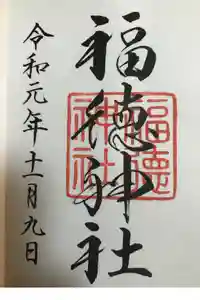 福徳神社
福德
神社
令和元年十一月九日